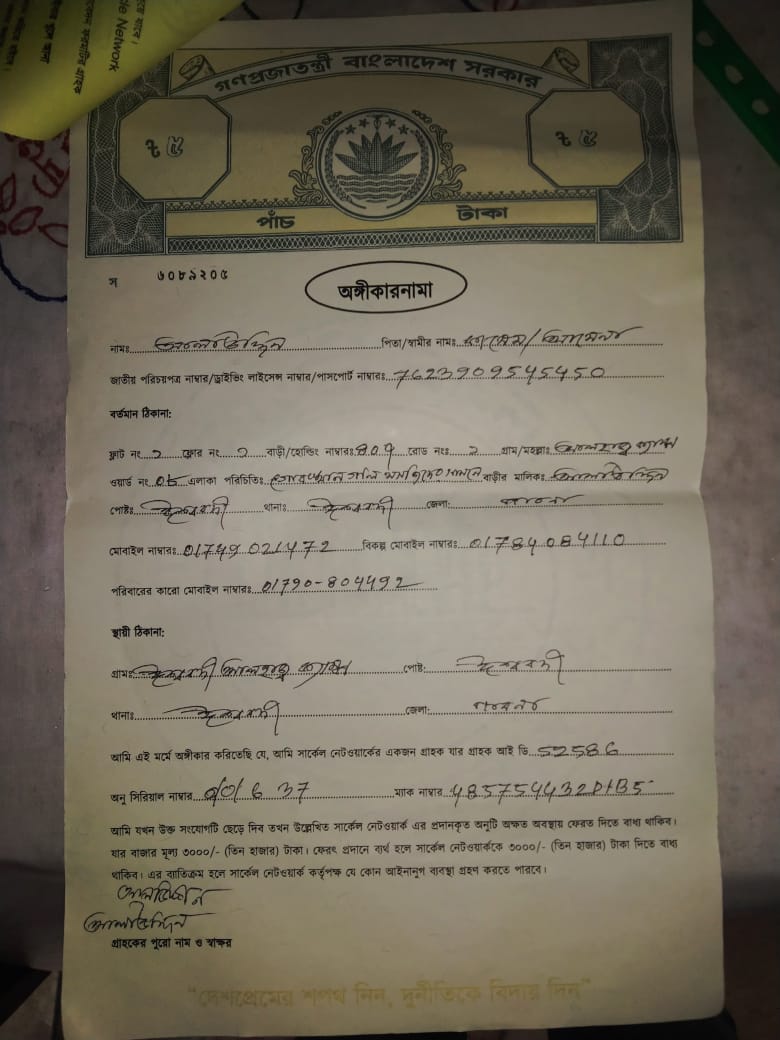 le Network
গণপ্রজাতন্ত্রী বাংলাদেশ সরকার
৳ ৫ ৳ ৫
পাঁচ টাকা
স ৬০৮৯২০৫
অঙ্গীকারনামা
নামঃ আলাউদ্দিন পিতা/স্বামীর নামঃ
জাতীয় পরিচয়পত্র নাম্বার/ড্রাইভিং লাইসেন্স নাম্বার/পাসপোর্ট নাম্বারঃ 7623909545450
বর্তমান ঠিকানা:
ফ্লাট নং ফ্লোর নং বাড়ী/হোল্ডিং নাম্বারঃ রোড নংঃ গ্রাম/মহল্লাঃ
ওয়ার্ড নং এলাকা পরিচিতিঃ বাড়ীর মালিকঃ আলাউদ্দিন
পোষ্টঃ ঈশ্বরদী থানাঃ ঈশ্বরদী জেলা: পাবনা
মোবাইল নাম্বারঃ 01749021472 বিকল্প মোবাইল নাম্বারঃ 01784084110
পরিবারের কারো মোবাইল নাম্বারঃ 01790-804492
স্থায়ী ঠিকানা:
গ্রামঃ ঈশ্বরদী পোষ্ট: ঈশ্বরদী
থানাঃ ঈশ্বরদী জেলা: পাবনা
আমি এই মর্মে অঙ্গীকার করিতেছি যে, আমি সার্কেল নেটওয়ার্কের একজন গ্রাহক যার গ্রাহক আই ডি 52586
অনু সিরিয়াল নাম্বার ম্যাক নাম্বার
আমি যখন উক্ত সংযোগটি ছেড়ে দিব তখন উল্লেখিত সার্কেল নেটওয়ার্ক এর প্রদানকৃত অনুটি অক্ষত অবস্থায় ফেরত দিতে বাধ্য থাকিব।
যার বাজার মূল্য ৩০০০/- (তিন হাজার) টাকা। ফেরৎ প্রদানে ব্যর্থ হলে সার্কেল নেটওয়ার্ককে ৩০০০/- (তিন হাজার) টাকা দিতে বাধ্য
থাকিব। এর ব্যতিক্রম হলে সার্কেল নেটওয়ার্ক কর্তৃপক্ষ যে কোন আইনানুগ ব্যবস্থা গ্রহণ করতে পারবে।
আলাউদ্দিন
গ্রাহকের পুরো নাম ও স্বাক্ষর
"দেশপ্রেমের শপথ নিন, দুর্নীতিকে বিদায় দিন"